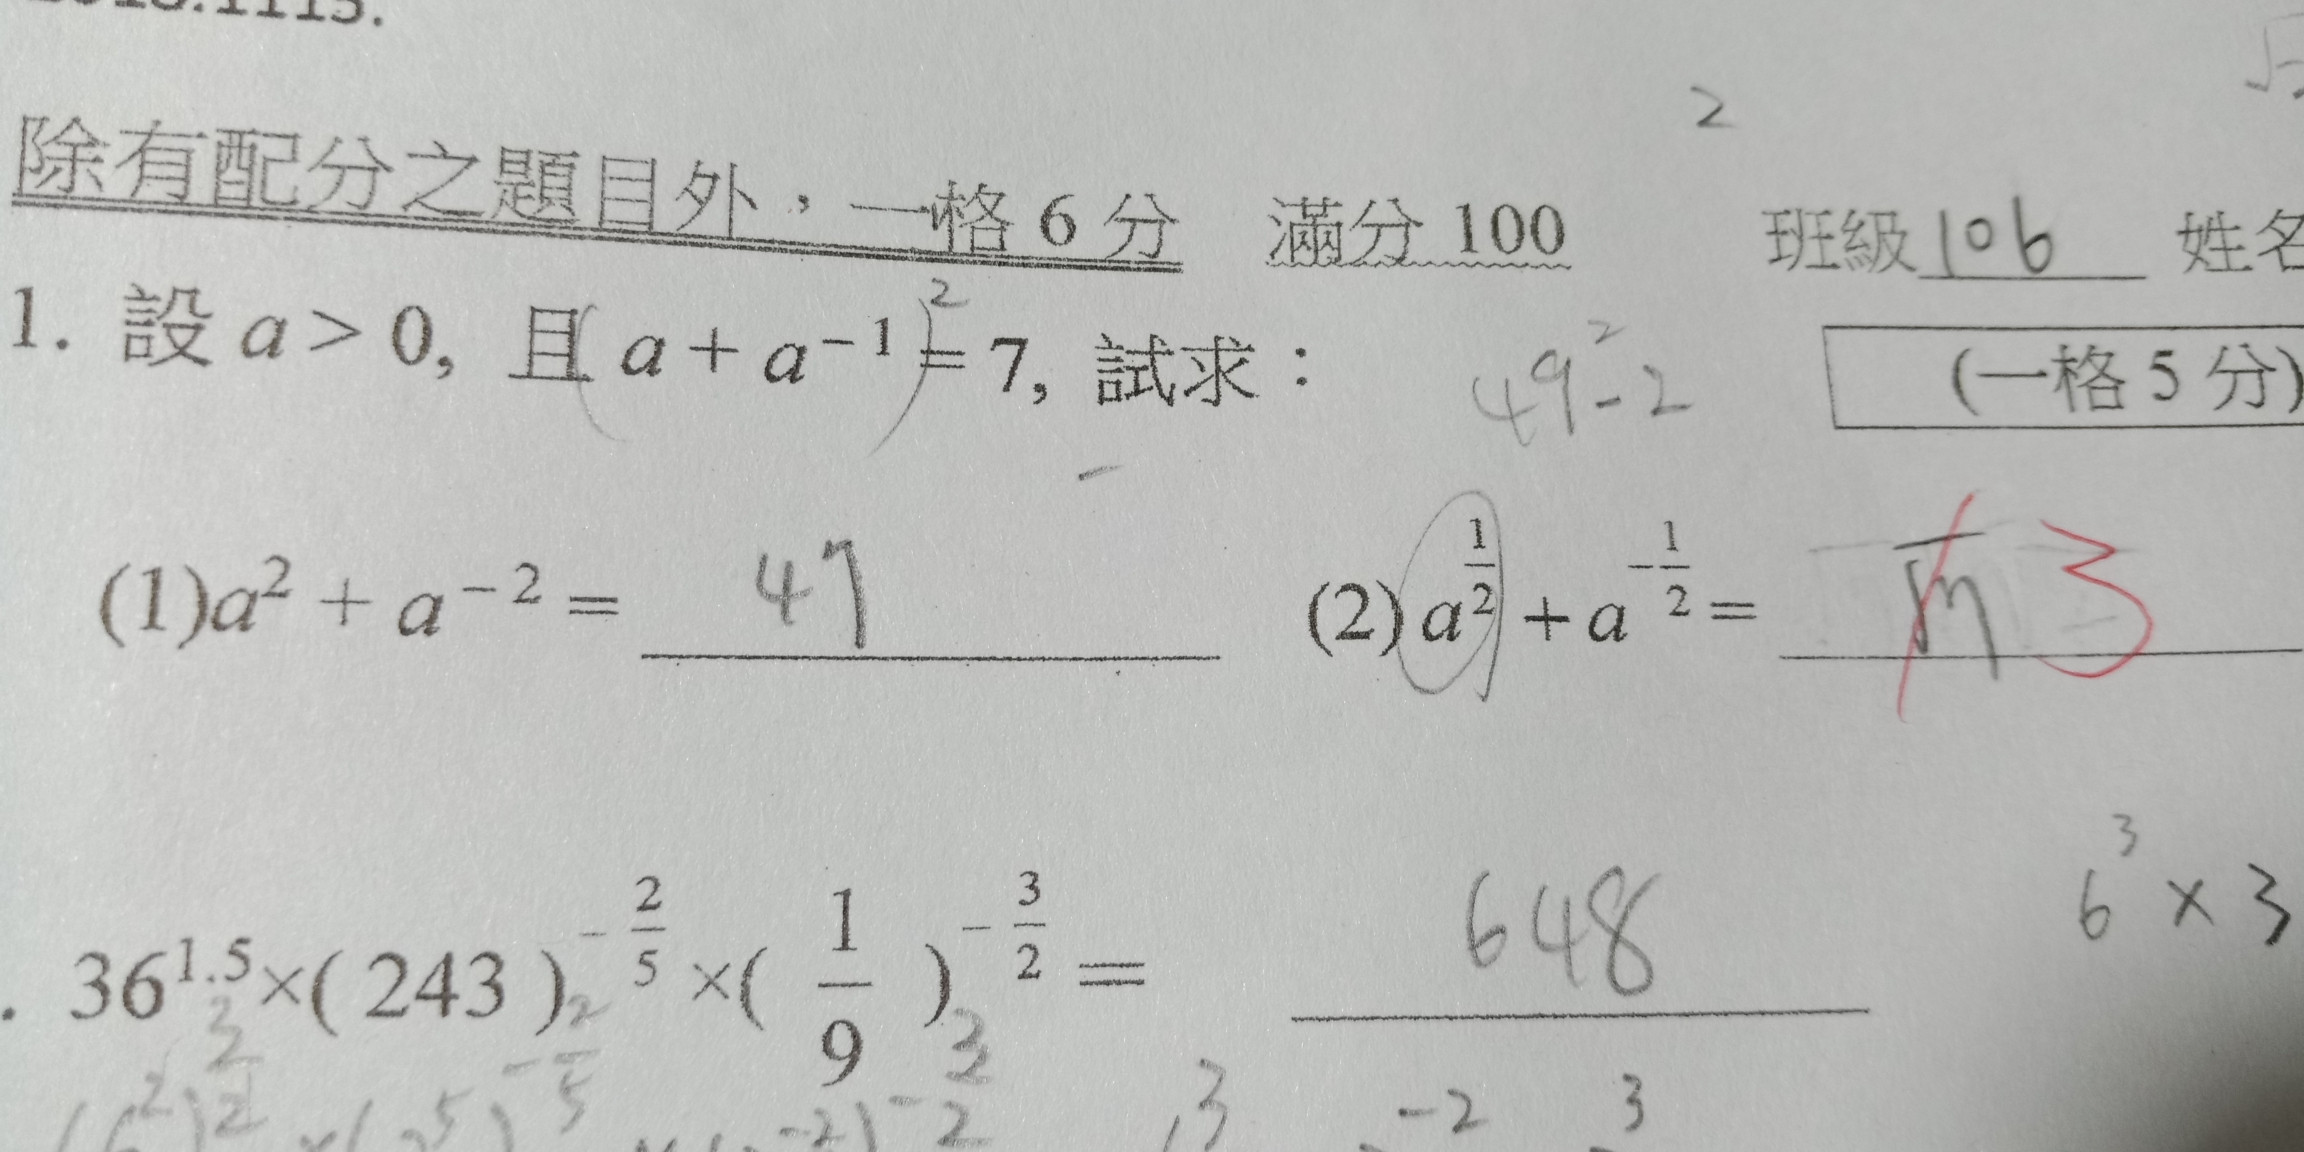 除有配分之題目外，一格 6 分 滿分 100 班級 106 姓名
1. 設 a > 0, 且( a + a⁻¹ )² = 7, 試求：
49 - 2
(一格 5 分)
(1)a² + a⁻² = 47
(2) a^(1/2) + a^(-1/2) = √7 3
36^1.5 × ( 243 )^(-2/5) × ( 1/9 )^(-3/2) = 648
6³ × 3